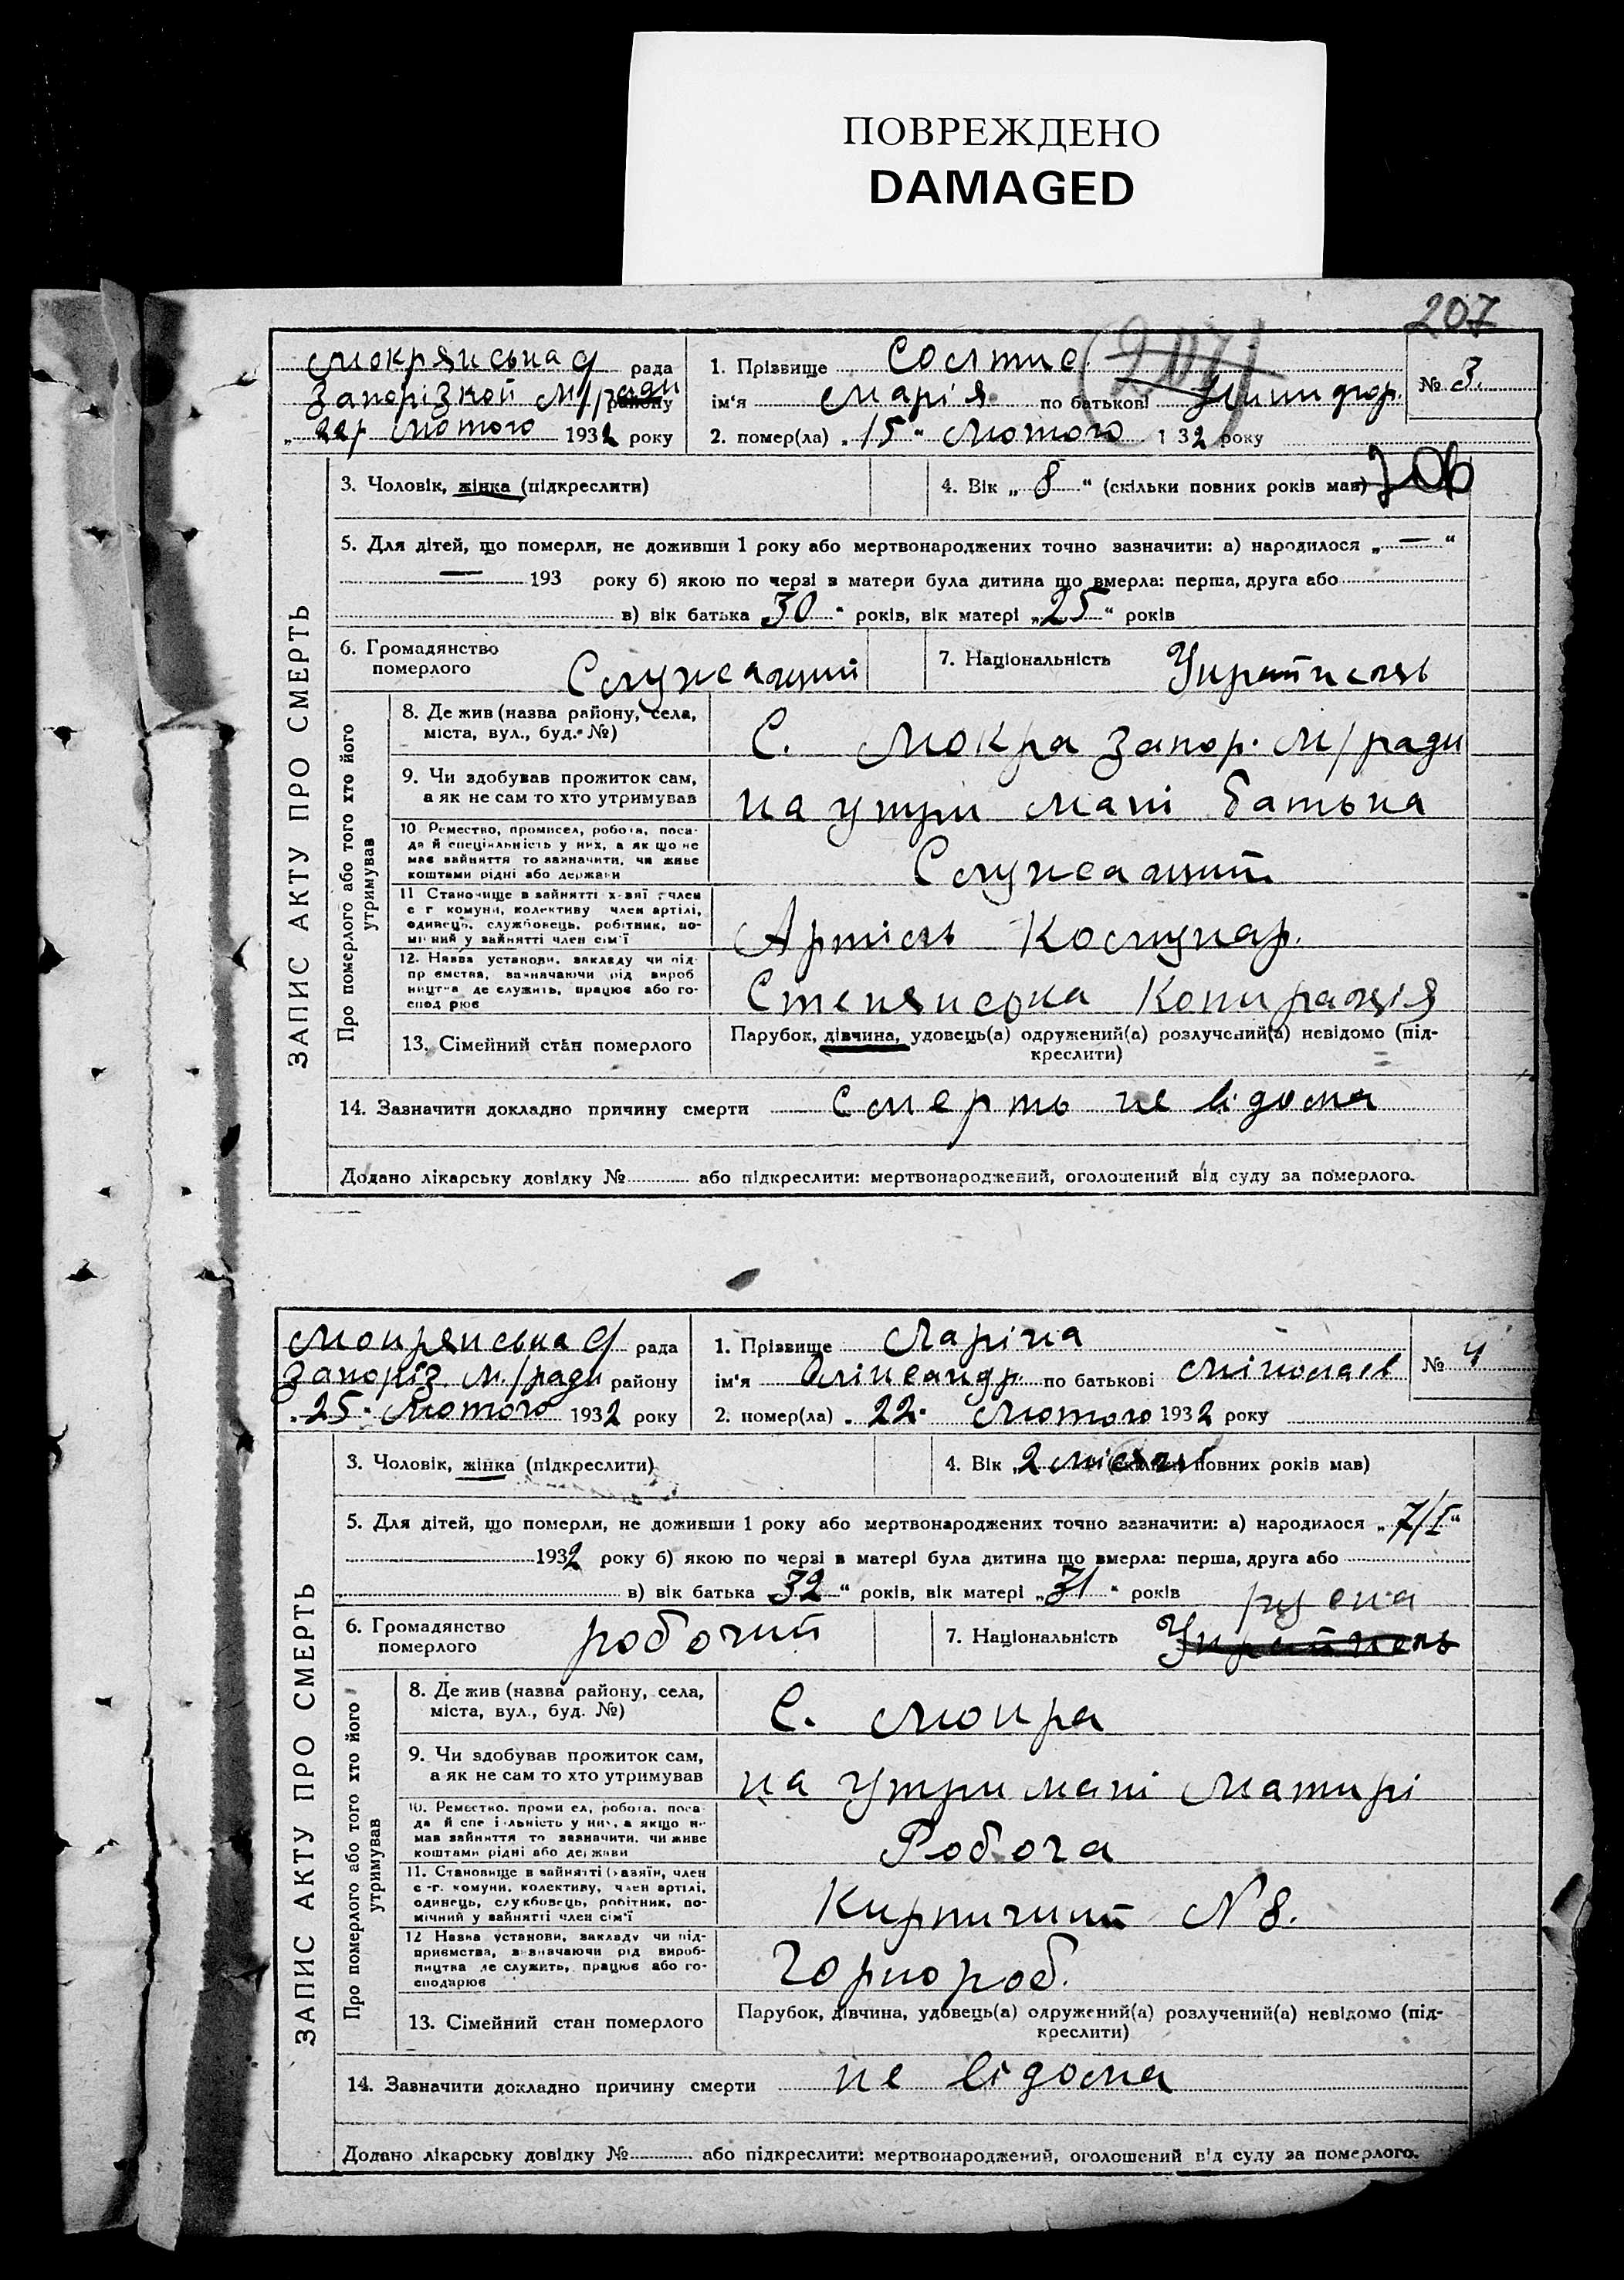 ПОВРЕЖДЕНО
DAMAGED
207
(207)
Мокрянська рада
Запорізкой М/ради району
„22“ Лютого 1932 року
1. Прізвище
ім'я Марія по батькові
2. помер(ла) „15“ Лютого 1932 року
№ 3.
3. Чоловік, жінка (підкреслити)
4. Вік „8“ (скільки повних років мав)
5. Для дітей, що померли, не доживши 1 року або мертвонароджених точно зазначити: а) народилося „—“
— 193 року б) якою по черзі в матери була дитина що вмерла: перша, друга або
в) вік батька „30“ років, вік матері „25“ років
6. Громадянство
померлого
Служеащий
7. Національність
Українець
ЗАПИС АКТУ ПРО СМЕРТЬ
Про померлого або того хто його
утримував
8. Де жив (назва району, села,
міста, вул., буд. №)
С. Мокра Запор. М/ради
9. Чи здобував прожиток сам,
а як не сам то хто утримував
на утри мані батька
10. Ремество, промисел, робота, поса-
да й спеціяльність у них, а як що не
має зайняття то зазначити, чи живе
коштами рідні або держави
Служеащий
11 Становище в зайнятті х-зяї член
с г комуни, колективу член артілі,
одинець, службовець, робітник, по-
мічний у зайнятті член сім'ї
12. Назва установи, закладу чи під-
приємства, зазначаючи рід вироб
ництва де служить, працює або го-
спод рює
13. Сімейний стан померлого
Парубок, дівчина, удовець(а) одружений(а) розлучений(а) невідомо (під-
креслити)
14. Зазначити докладно причину смерти Смерть не відома
Додано лікарську довідку № або підкреслити: мертвонароджений, оголошений від суду за померлого.
Мокрянська рада
Запоріз. М/ради району
„25“ Лютого 1932 року
1. Прізвище Ларіна
ім'я Олександр по батькові Міколаев
2. помер(ла) „22“ Лютого 1932 року
№ 4
3. Чоловік, жінка (підкреслити)
4. Вік „2 місяці (скільки повних років мав)
5. Для дітей, що померли, не доживши 1 року або мертвонароджених точно зазначити: а) народилося „7/I“
1932 року б) якою по черзі в матері була дитина що вмерла: перша, друга або
в) вік батька „32“ років, вік матері „31“ років
6. Громадянство
померлого
робочий
7. Національність
руська
Українець
ЗАПИС АКТУ ПРО СМЕРТЬ
Про померлого або того хто його
утримував
8. Де жив (назва району, села,
міста, вул., буд. №)
С. Мокра
9. Чи здобував прожиток сам,
а як не сам то хто утримував
на утри мані матирі
10. Ремество, проми ел, робота, поса-
да й спеціяльність у них, а якщо не
мав зайняття то зазначити, чи живе
коштами рідні або держави
Робоча
11. Становище в зайнятті (хазяїн, член
с-г. комуни, колективу, член артілі,
одинець, службовець, робітник, по-
мічний у зайнятті член сім'ї
Кирпичний N 8.
12 Назва установи, закладу чи під-
приємства, зазначаючи рід вироб-
ництва де служить, працює або го-
сподарює
Чорнороб.
13. Сімейний стан померлого
Парубок, дівчина, удовець(а) одружений(а) розлучений(а) невідомо (під-
креслити)
14. Зазначити докладно причину смерти не відома
Додано лікарську довідку № або підкреслити: мертвонароджений, оголошений від суду за померлого.